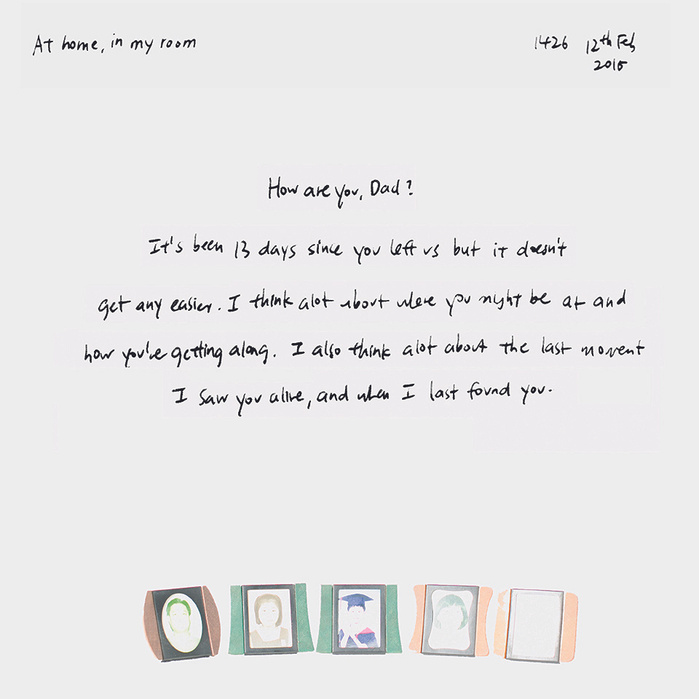 At home, in my room
1426 12th Feb
2015
How are you, Dad?
It's been 13 days since you left us but it doesn't
get any easier. I think alot about where you might be at and
how you're getting along. I also think alot about the last moment
I saw you alive, and when I last found you.